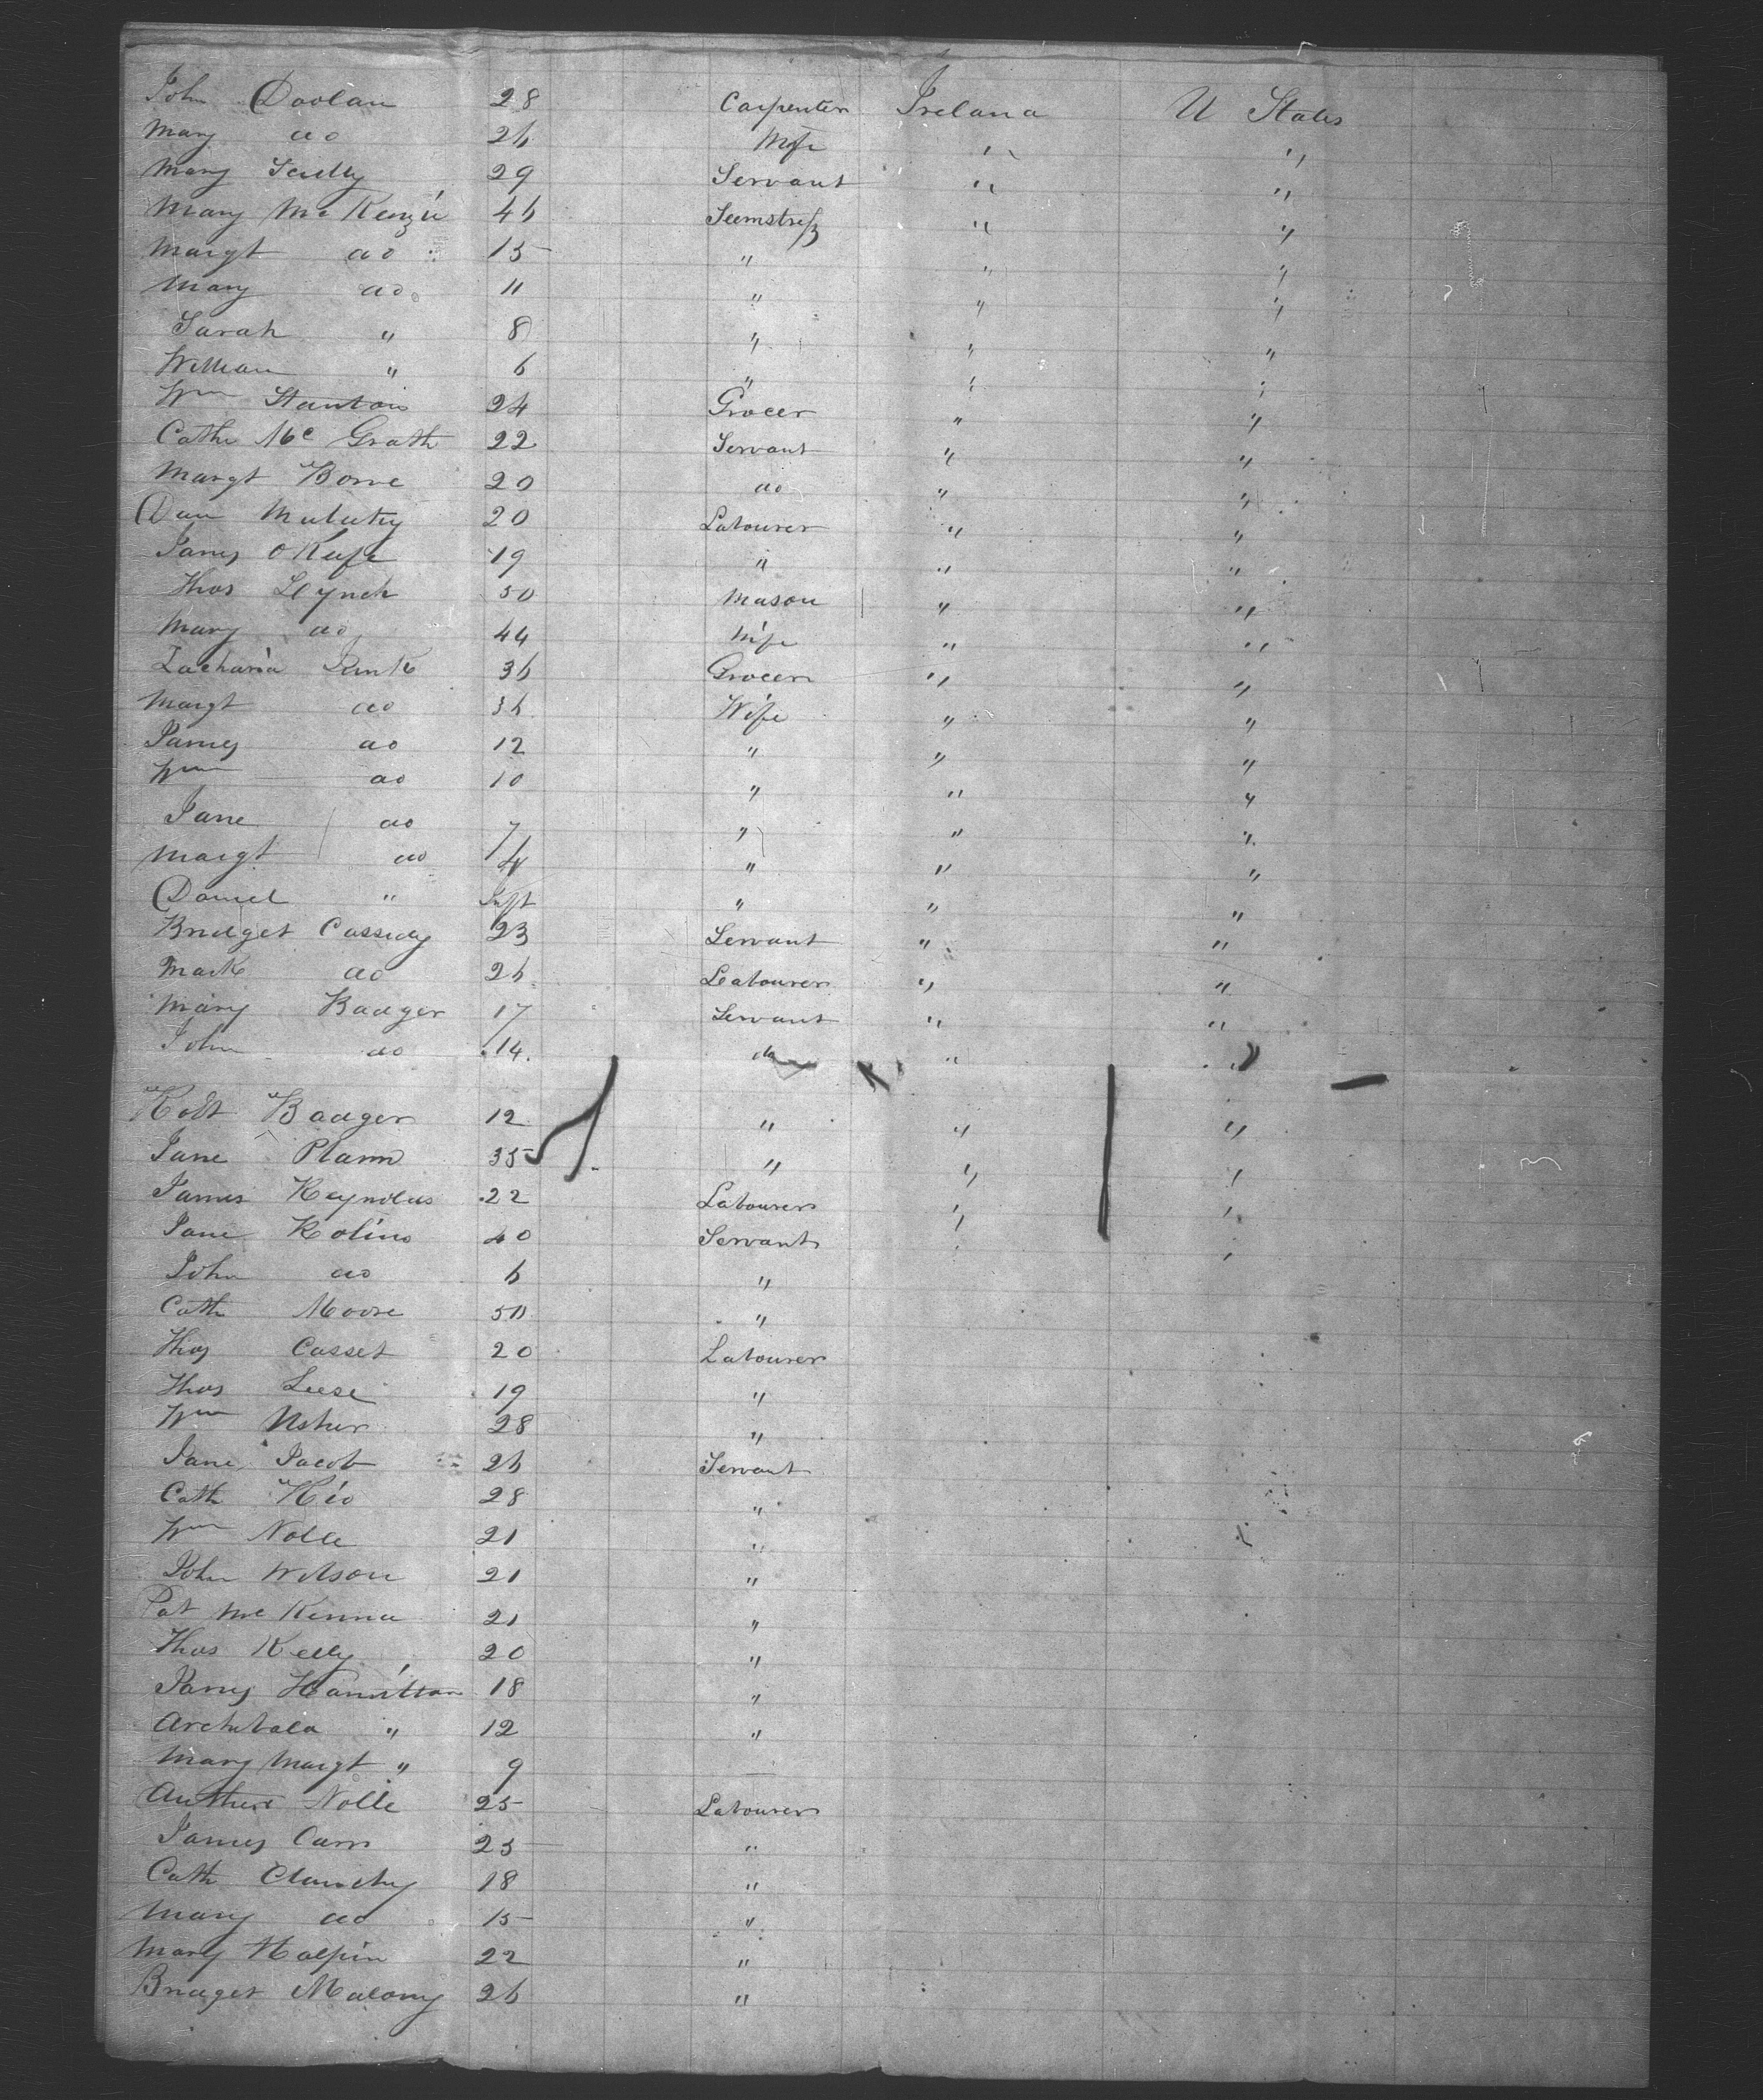 John Doolan 28 Carpenter Ireland U States
Mary do 26 Wife " "
Mary Scully 29 Servant " "
Mary McKenzie 46 Seemstress " "
Margt do 15 " " "
Mary do 11 " " "
Sarah " 8 " " "
William " 6 " " "
Wm Stanton 24 Grocer " "
Cathe McGrath 22 Servant " "
Margt Bowe 20 do " "
Dan 20 Labourer " "
James OKeefe 19 " " "
Thos Lynch 50 Mason " "
Mary do 44 Wife " "
Zacharia 36 Grocer " "
Margt do 36 Wife " "
James do 12 " " "
Wm do 10 " " "
Jane do 7 " " "
Margt do 4 " " "
Daniel " Inft " " "
Bridget Cassidy 23 Servant " "
Mark do 26 Labourer " "
Mary Badger 17 Servant " "
John do 14 do " "
Robt Badger 12 " " "
Jane 35 " " "
James Reynolds 22 Labourer " "
Jane Rolins 40 Servant " "
John do 6 "
Cath Moore 50 "
Thos Casset 20 Labourer
Thos Leese 19 "
Wm Usher 28 "
Jane Jacob 26 Servant
Cath 28 "
Wm Nolle 21 "
John Wilson 21 "
Pat McKenna 21 "
Thos Kelly 20 "
James Hamilton 18 "
Archibald " 12 "
Mary Margt " 9
Nolle 25 Labourer
James Carr 25 "
Cath Clanchy 18 "
Mary do 15 "
Mary Halpin 22 "
Bridget Malony 26 "